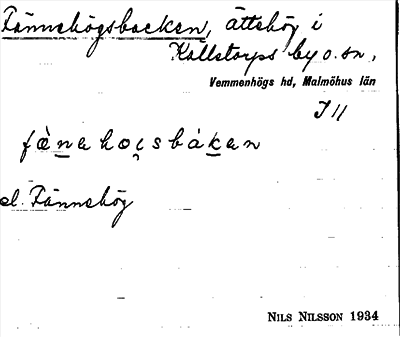 Fännehögsbacken, ättehög i
Källstorps by o. sn,
Vemmenhögs hd, Malmöhus län
I 11
fènehoçsbákan
el. Fännehög
NILS NILSSON 1934